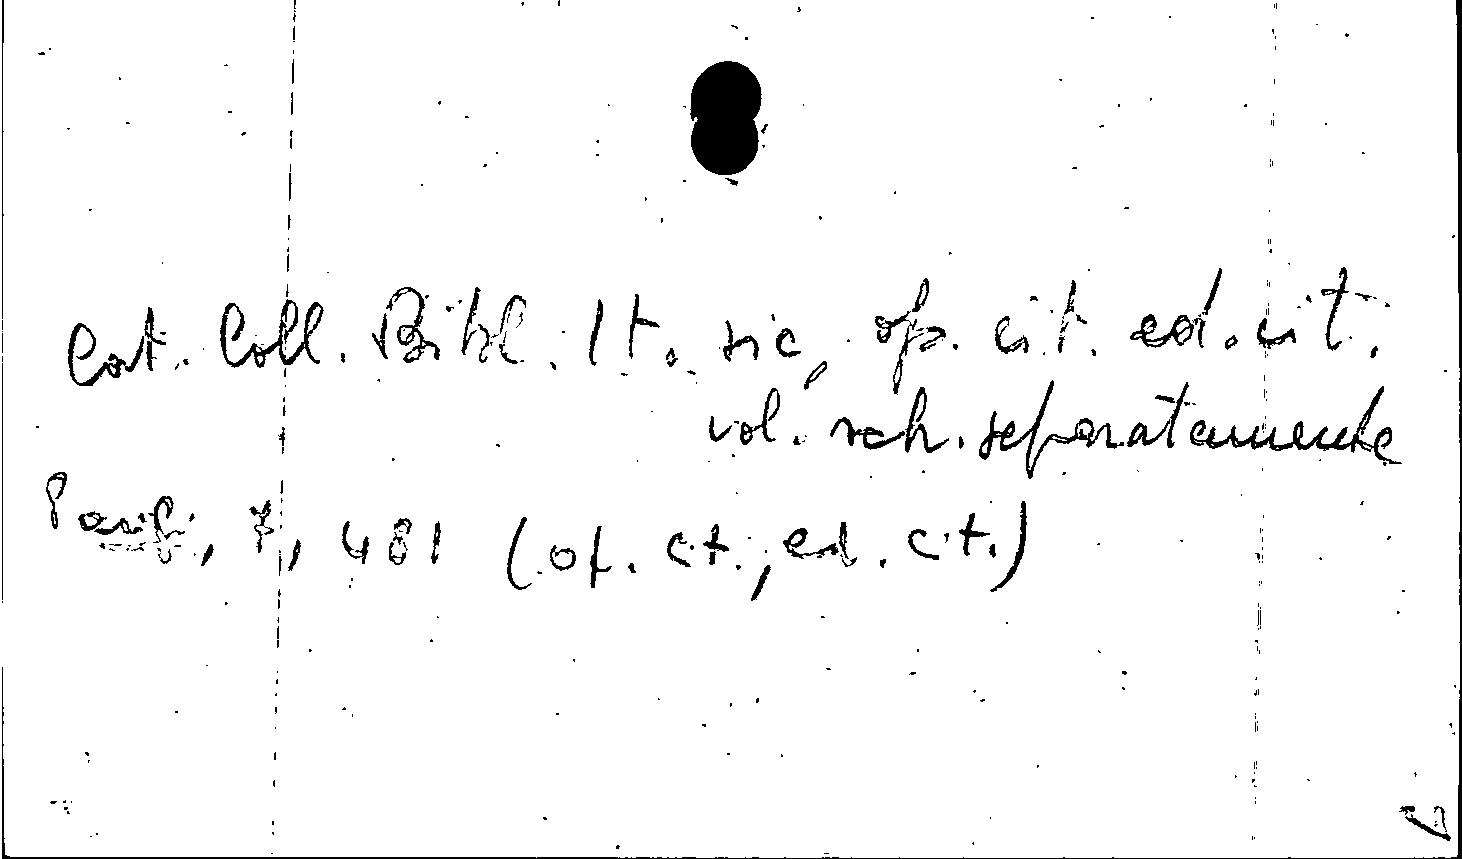 Cat. Coll. Bibl. It. sic, op. cit. ed. cit.
vol. sch. separatamente
Parigi, 7, 481 (op. cit., ed. cit.)